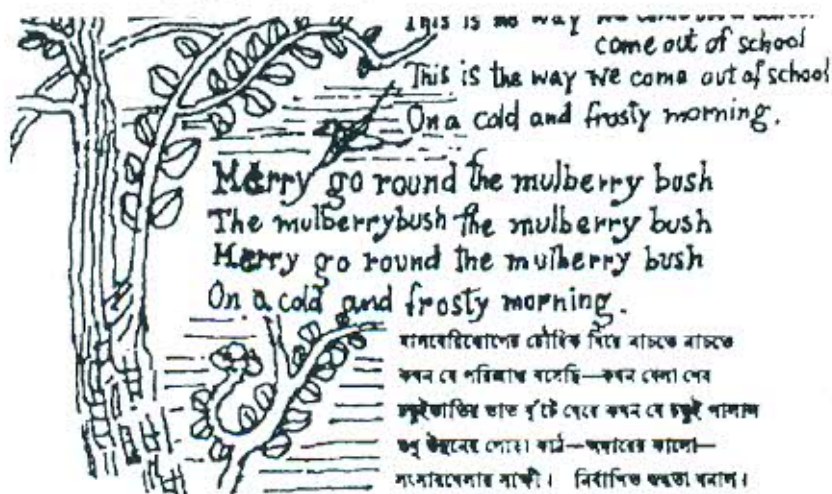 This is the way we come out of school
come out of school
This is the way we come out of school
On a cold and frosty morning.
Merry go round the mulberry bosh
The mulberrybush the mulberry bush
Merry go round the mulberry bush
On a cold and frosty morning.
চৌদিক ঘিরে নাচতে নাচতে
কখন যে পরিশ্রান্ত বসেছি—কখন খেলা শেষ
চড়ুইভাতির ভাত খুঁটে খেয়ে কখন যে চড়ুই পালাল
শুধু উনুনের পোড়া কাঠ—অঙ্গারের কালো—
সংসারখেলার সাক্ষী। নির্বাপিত স্তব্ধতা ঘনাল।